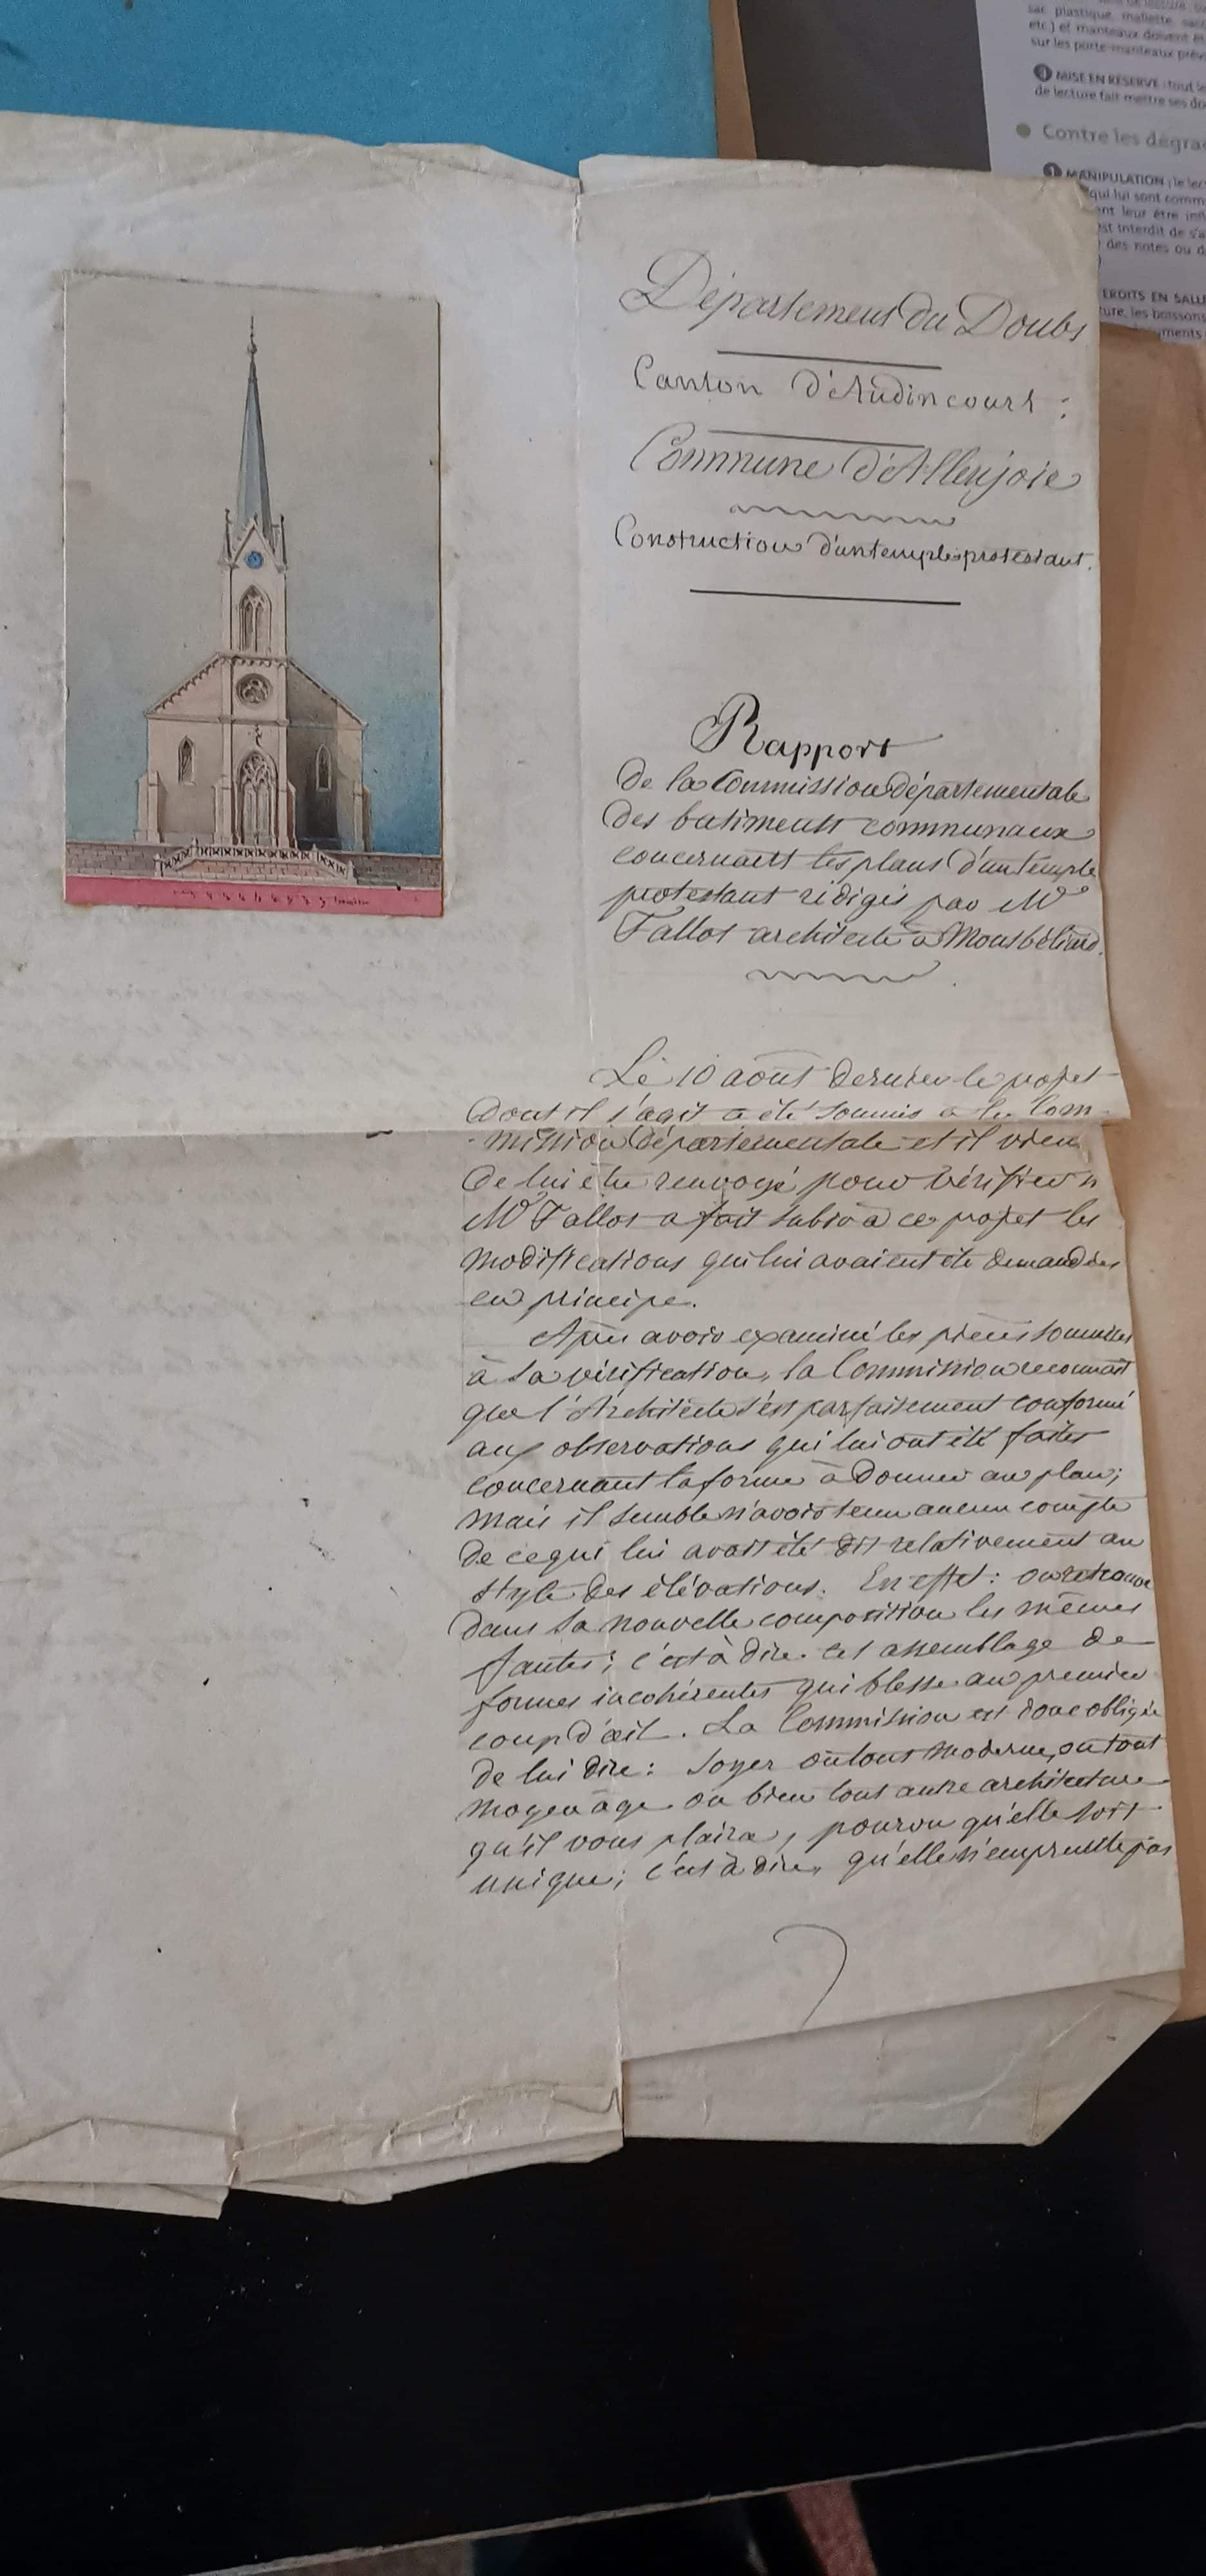 sac plastique, mallette, sac
etc) et manteaux doivent êt
sur les porte-manteaux prév
3 MISE EN RÉSERVE : tout le
de lecture fait mettre ses do
Contre les dégra
1 MANIPULATION : le lec
qui lui sont comm
ent leur être infl
est interdit de s'a
des notes ou d
ERDITS EN SALL
ture, les boissons
ments
Département du Doubs
Canton d'Audincourt :
Commune d'Allenjoie
Construction d'un temple protestant.
Rapport
De la Commission départementale
des batiments communaux
concernant les plans d'un temple
protestant rédigés par Mr
Fallot architecte à Montbéliard.
Le 10 août dernier le projet
dont il s'agit a été soumis à la Com-
-mission départementale et il vient
de lui être renvoyé pour vérifier si
Mr Fallot a fait subir à ce projet les
modifications qui lui avaient été demandées
en principe.
Après avoir examiné les pièces soumises
à sa vérification, la Commission reconnait
que l'Architecte s'est parfaitement conformé
aux observations qui lui ont été faites
concernant la forme à donner au plan;
mais il semble n'avoir tenu aucun compte
de ce qui lui avait été dit relativement au
style des élévations. En effet : on retrouve
dans sa nouvelle composition les mêmes
fautes; c'est à dire cet assemblage de
formes incohérentes qui blesse au premier
coup d'œil. La Commission est donc obligée
de lui dire : soyez ou tout moderne, ou tout
moyen âge ou bien tout autre architecture
qu'il vous plaira, pourvu qu'elle soit
unique; c'est à dire, qu'elle n'emprunte pas